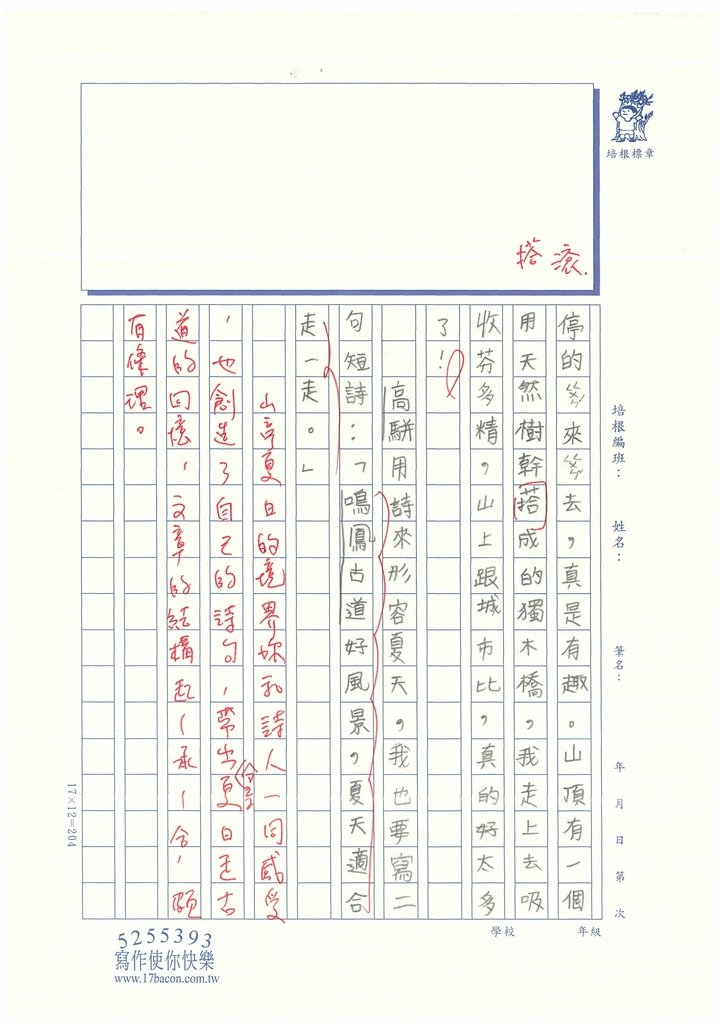 培根標章
搭 滾.
培根編班： 姓名： 筆名： 年 月 日 第 次
停的來去，真是有趣。山頂有一個
用天然樹幹搭成的獨木橋，我走上去吸
收芬多精，山上跟城市比，真的好太多
了！
高駢用詩來形容夏天，我也要寫二
句短詩：「鳴鳳古道好風景，夏天適合
走一走。」
山亭夏日的境界妳和詩人一同感受
，也創造了自己的詩句，帶出夏日走古
道的回憶，文章的結構起—承—合，頗
有條理。
17×12=204
學校 年級
5255393
寫作使你快樂
www.17bacon.com.tw